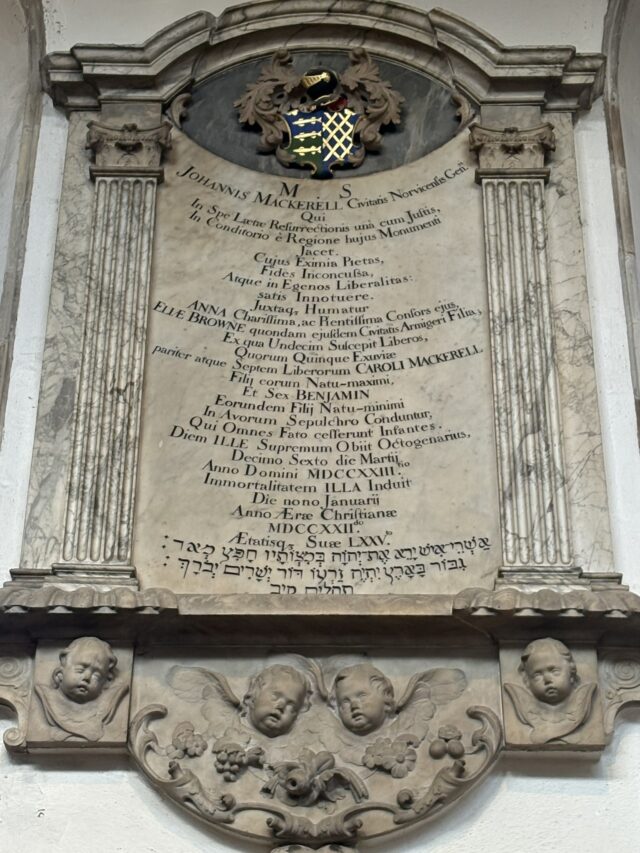 M . S
JOHANNIS MACKERELL Civitatis Norvicensis Gen:
Qui
In Spe Lætæ Resurrectionis unà cum Justis,
In Conditorio è Regione hujus Monumenti
Jacet.
Cujus Eximia Pietas,
Fides Inconcussa,
Atque in Egenos Liberalitas:
satis Innotuere.
Juxtaq, Humatur
ANNA Charissima, ac Pientissima Consors ejus,
ELIÆ BROWNE quondam ejusdem Civitatis Armigeri Filia;
Ex qua Undecim Suscepit Liberos,
Quorum Quinque Exuviæ
pariter atque Septem Liberorum CAROLI MACKERELL
Filij eorum Natu-maximi,
Et Sex BENJAMIN
Eorundem Filij Natu-minimi
In Avorum Sepulchro Conduntur,
Qui Omnes Fato cesserunt Infantes.
Diem ILLE Supremum Obiit Octogenarius,
Decimo Sexto die Martij
Anno Domini MDCCXXIII.tio
Immortalitatem ILLA Induit
Die nono Januarij
Anno Æræ Christianæ
MDCCXXII.do
Ætatisq, Suæ LXXV.to
אַשְׁרֵי־אִישׁ יָרֵא אֶת־יְהוָה בְּמִצְוֹתָיו חָפֵץ מְאֹד׃
גִּבּוֹר בָּאָרֶץ יִהְיֶה זַרְעוֹ דּוֹר יְשָׁרִים יְבֹרָךְ׃
תהלים קיב